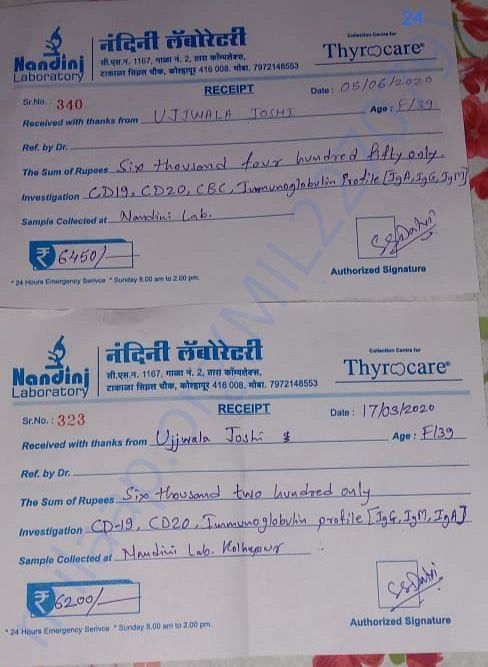 24
Nandini
Laboratory
नंदिनी लॅबोरेटरी
सी.एस.न. 1167, गाळा नं. 2, तारा कॉम्पलेक्स,
टाकाळा सिग्नल चौक, कोल्हापूर 416 008. मोबा. 7972148553
Collection Centre for
Thyrocare®
RECEIPT
Sr.No. : 340
Date : 05/06/2020
Received with thanks from UJJWALA JOSHI Age : F/39
Ref. by Dr.
The Sum of Rupees Six thousand four hundred fifty only.
Investigation CD19, CD20, CBC, Immunoglobulin Profile [IgA, IgG, IgM]
Sample Collected at Nandini Lab.
₹ 6450/-
Authorized Signature
* 24 Hours Emergency Serivce * Sunday 8.00 am to 2.00 pm.
Nandini
Laboratory
नंदिनी लॅबोरेटरी
सी.एस.न. 1167, गाळा नं. 2, तारा कॉम्पलेक्स,
टाकाळा सिग्नल चौक, कोल्हापूर 416 008. मोबा. 7972148553
Collection Centre for
Thyrocare®
RECEIPT
Sr.No. : 323
Date : 17/03/2020
Received with thanks from Ujjwala Joshi Age : F/39
Ref. by Dr.
The Sum of Rupees Six thousand two hundred only
Investigation CD-19, CD20, Immunoglobulin profile [IgG, IgM, IgA]
Sample Collected at Nandini Lab. Kolhapur
₹ 6200/-
Authorized Signature
* 24 Hours Emergency Serivce * Sunday 8.00 am to 2.00 pm.